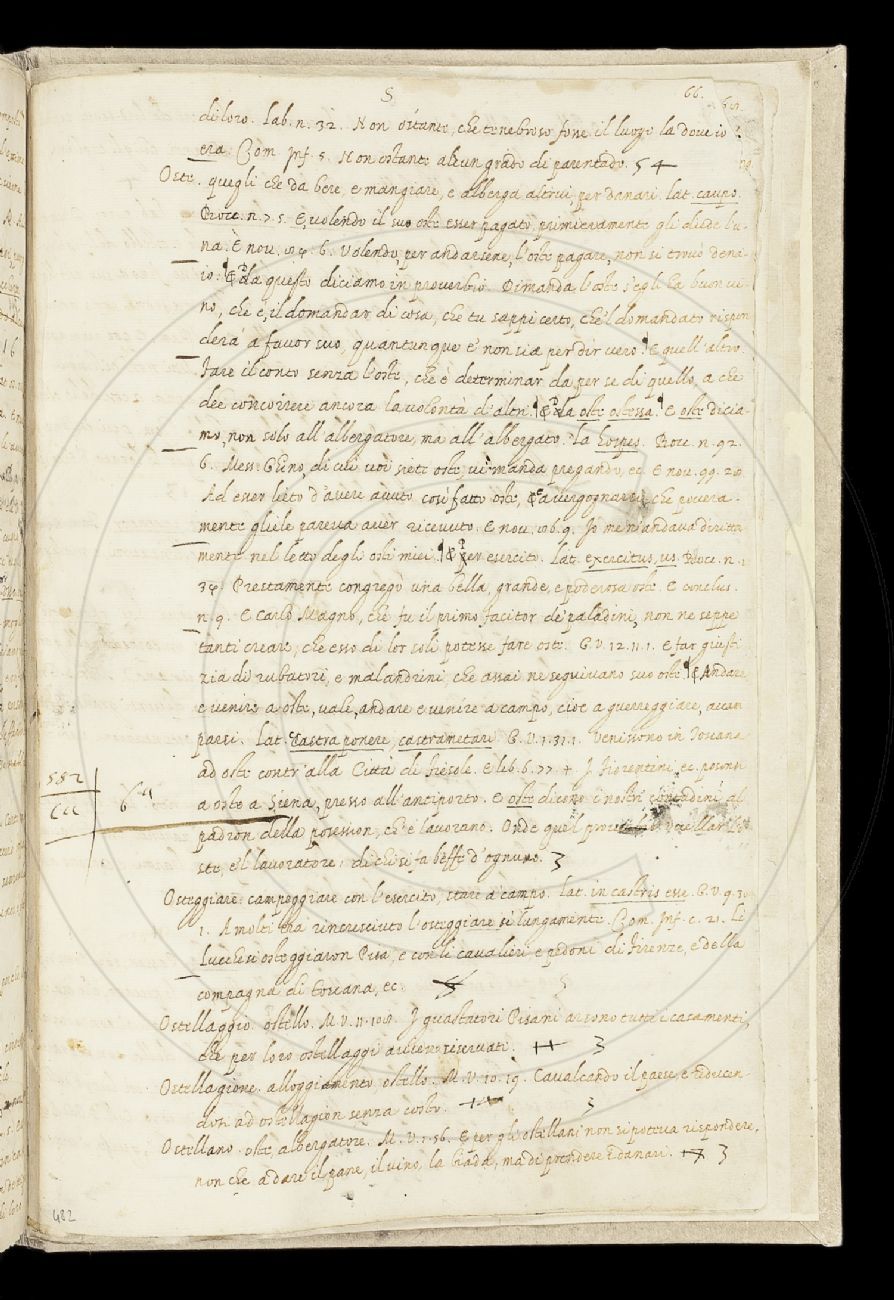 S
66.
di loro. Lab. n. 32. Non ostante, che tenebroso fosse il luogo là dove io
era. Com. Inf. 5. Non ostante alcun grado di parentado. 5 4
Oste. quegli che da bere, e mangiare, e alberga altrui, per danari. lat. caupo.
Bocc. n. 7. 5. E, volendo il suo oste esser pagato, primieramente gli diede l'u-
na. E nov. 6. Volendo, per andarsene, l'oste pagare, non si trovò dena-
io. Da questo diciamo in proverbio. Dimanda l'oste s'egli ha buon vi-
no, che è, il domandar di cosa, che tu sappi certo, che'l domandato rispon
derà a favor suo, quantunque e' non sia per dir vero. E quell'altro.
Fare il conto senza l'oste, che è determinar da per se di quello, a che
dee concorrere ancora la volontà d'altri. da oste ostessa. E oste dicia-
mo, non solo all'albergatore, ma all'albergato. La. hospes. Bocc. n. 92.
6. Mess. Ghino, di cui voi siete oste, vi manda pregando, ec. E nov. 99.
Ad esser lieto d'avere avuto così fatto oste, e a vergognarsi, che povera-
mente gliele pareva aver ricevuto. E nov. 106. 9. Io me n'andava diritta
mente nel letto degli osti miei. per esercito. Lat. exercitus, us. Bocc. n.
34. Prestamente congregò una bella, grande, e poderosa oste. E conclus.
n. 9. E Carlo Magno, che fu il primo facitor de' paladini, non ne seppe
tanti creare, che esso di lor soli potesse fare oste. G. V. 12. 11. 1. E far giusti
zia di rubatori, e malandrini che assai ne seguivano suo oste. Andare,
e venire a oste, vale, andare e venire a campo, cioè a guerreggiare, accam
parsi. Lat. Castra ponere, castrametari. G. V. 1. 31. 1. Venissono in Toscana
ad oste contr'alla Città di Fiesole. E lib. 6. 77. 4. I Fiorentini, ec. posonsi
a oste a Siena, presso all'antiporto. E oste dicono i nostri contadini, al
padron della possession, ch'e' lavorano. Onde quel
ste, e'l lavoratore, di che si fa beffe d'ognuno. 3
Osteggiare. campeggiare con l'esercito, stare a campo. lat. in castris esse. G. V. 9. 30
1. A molti era rincresciuto l'osteggiare sì lungamente. Com. Inf. c. 21. Li
Lucchesi osteggiaron Pisa, e con li cavalieri e pedoni di Firenze, e della
compagna di Toscana, ec. 5
Ostellaggio. ostello. M. V. 11. I guastatori Pisani arsono tutti i casamenti,
che per loro ostellaggi avien riservati. 3
Ostellagione. alloggiamento, ostello. M. V. 10. 19. Cavalcando il paese, e riducen
don ad ostellagion senza costo. 3
Ostellano. oste, albergatore. M. V. 1. 56. E per gli ostellani non si poteva rispondere,
non che a dare il pane, il vino, la biada, ma di prendere i danari. 3
582
482